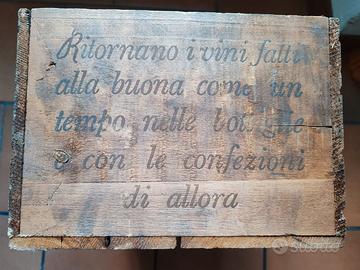 Ritornano i vini fatti
alla buona come un
tempo nelle bottiglie
e con le confezioni
di allora
subito